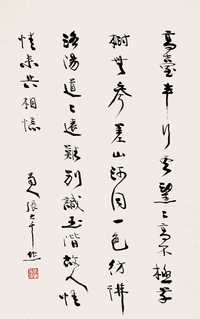 高臺半行雲望〻高不極草
樹無參差山河同一色彷彿
洛陽道〻遠難別識玉階故人情
情來共相憶
蜀人張大千爰